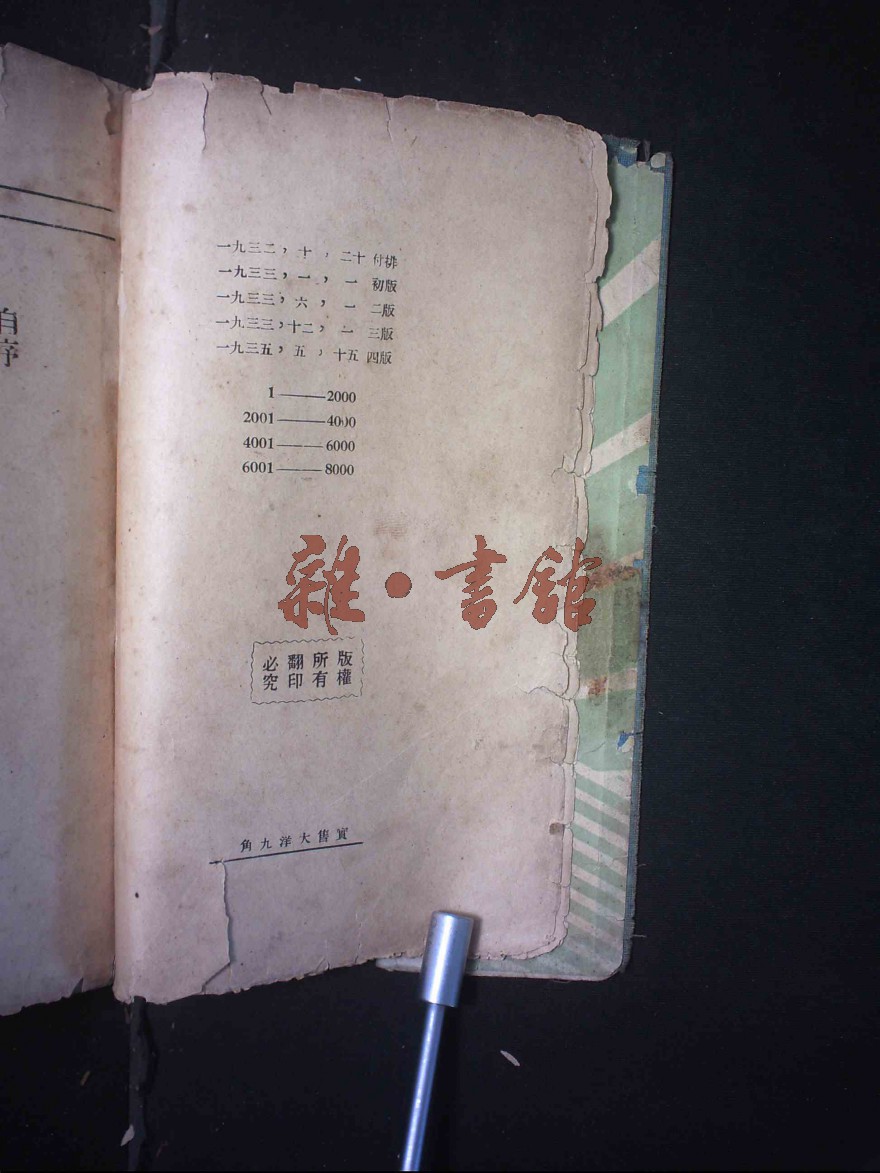 自序
一九三二，十，二十付排
一九三三，一，一初版
一九三三，六，一二版
一九三三，十二，一三版
一九三五，五，十五四版
1———2000
2001———4000
4001———6000
6001———8000
雜·書館
版權
所有
翻印
必究
實售大洋九角